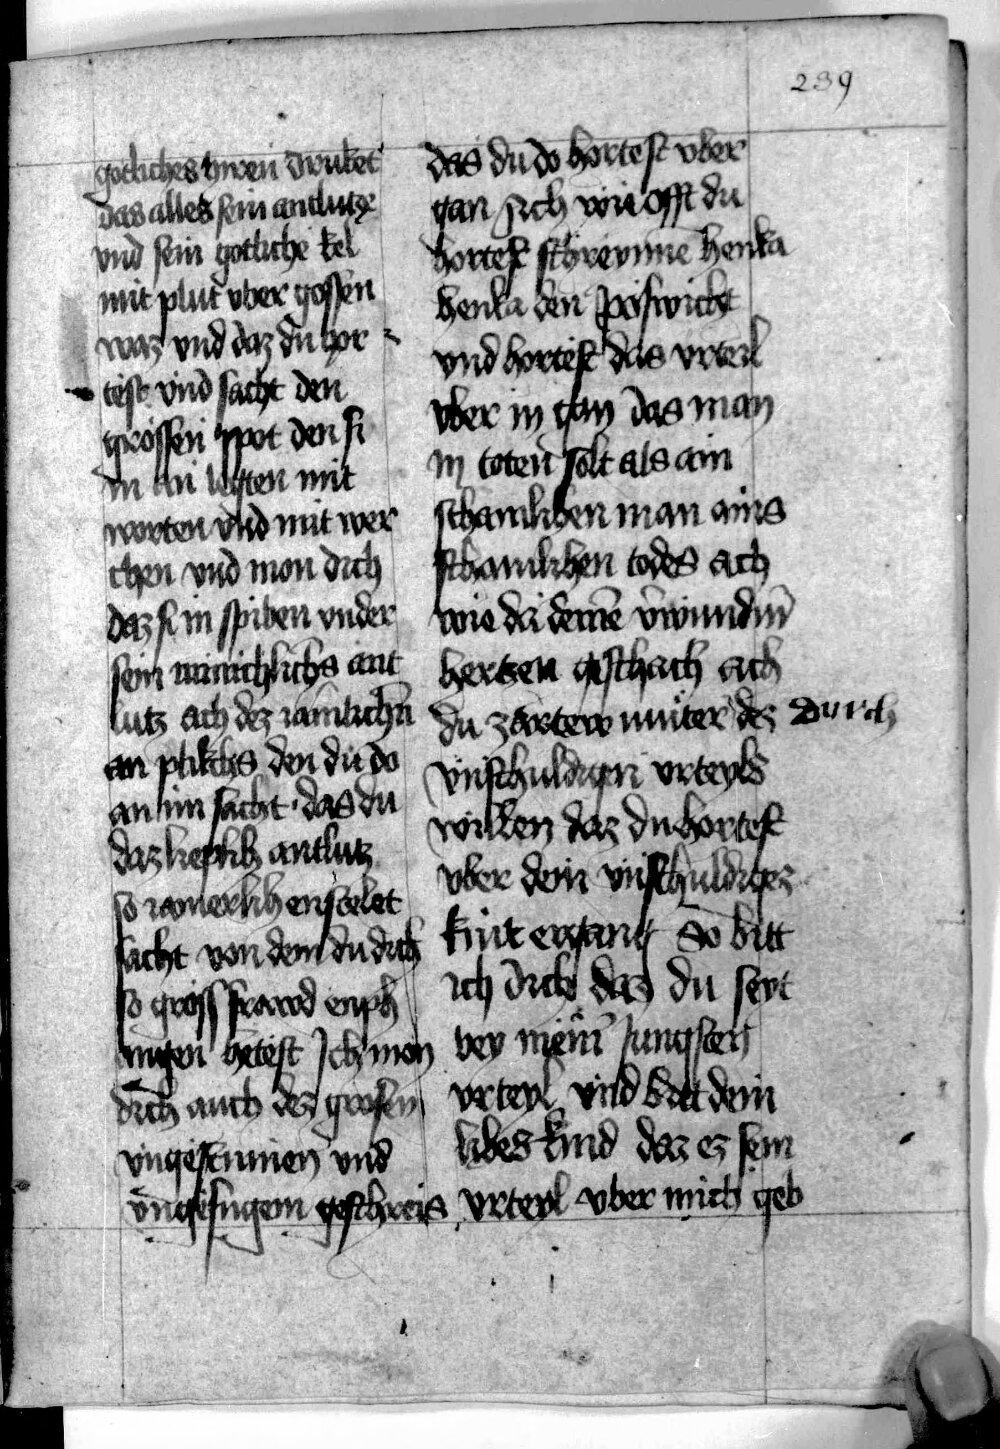 239
gotliches hiren druket
das alles sein antlutze
vnd sein gotliche kel
mit plut vber gossen
waz vnd daz du hor
test vnd sacht den
grossen spot den si
in an legten mit
worten vnd mit wer
chen vnd mon dich
daz si in spiben vnder
sein minichlichs ant
lutz ach dez iamlichn
an plikchs den du do
an im sacht das du
daz lieplich antlutz
so iamerlich enstelet
sacht von dem du dich
so gross frawd enph
angen hetest Ich mon
dich auch dez grosen
vngestumen vnd
vngefugem geschreis
das du do hortest vber
gan sich wie offt du
hortest schreynne henka
henka den poswicht
vnd hortest das vrteyl
vber in gan das man
in toten solt als ain
schamlichen man ains
schamlichen todes ach
wie da deinē vwundm
hertzen geschach ach
du zartew muter dez durch
vnschuldigen vrteyls
willen daz du hortest
vber dein vnschuldigez
kint ergang So bitt
ich dich daz du seyt
bey meinē jungsten
vrteyl vnd bitt dein
libes kind daz ez sein
vrteyl vber mich geb